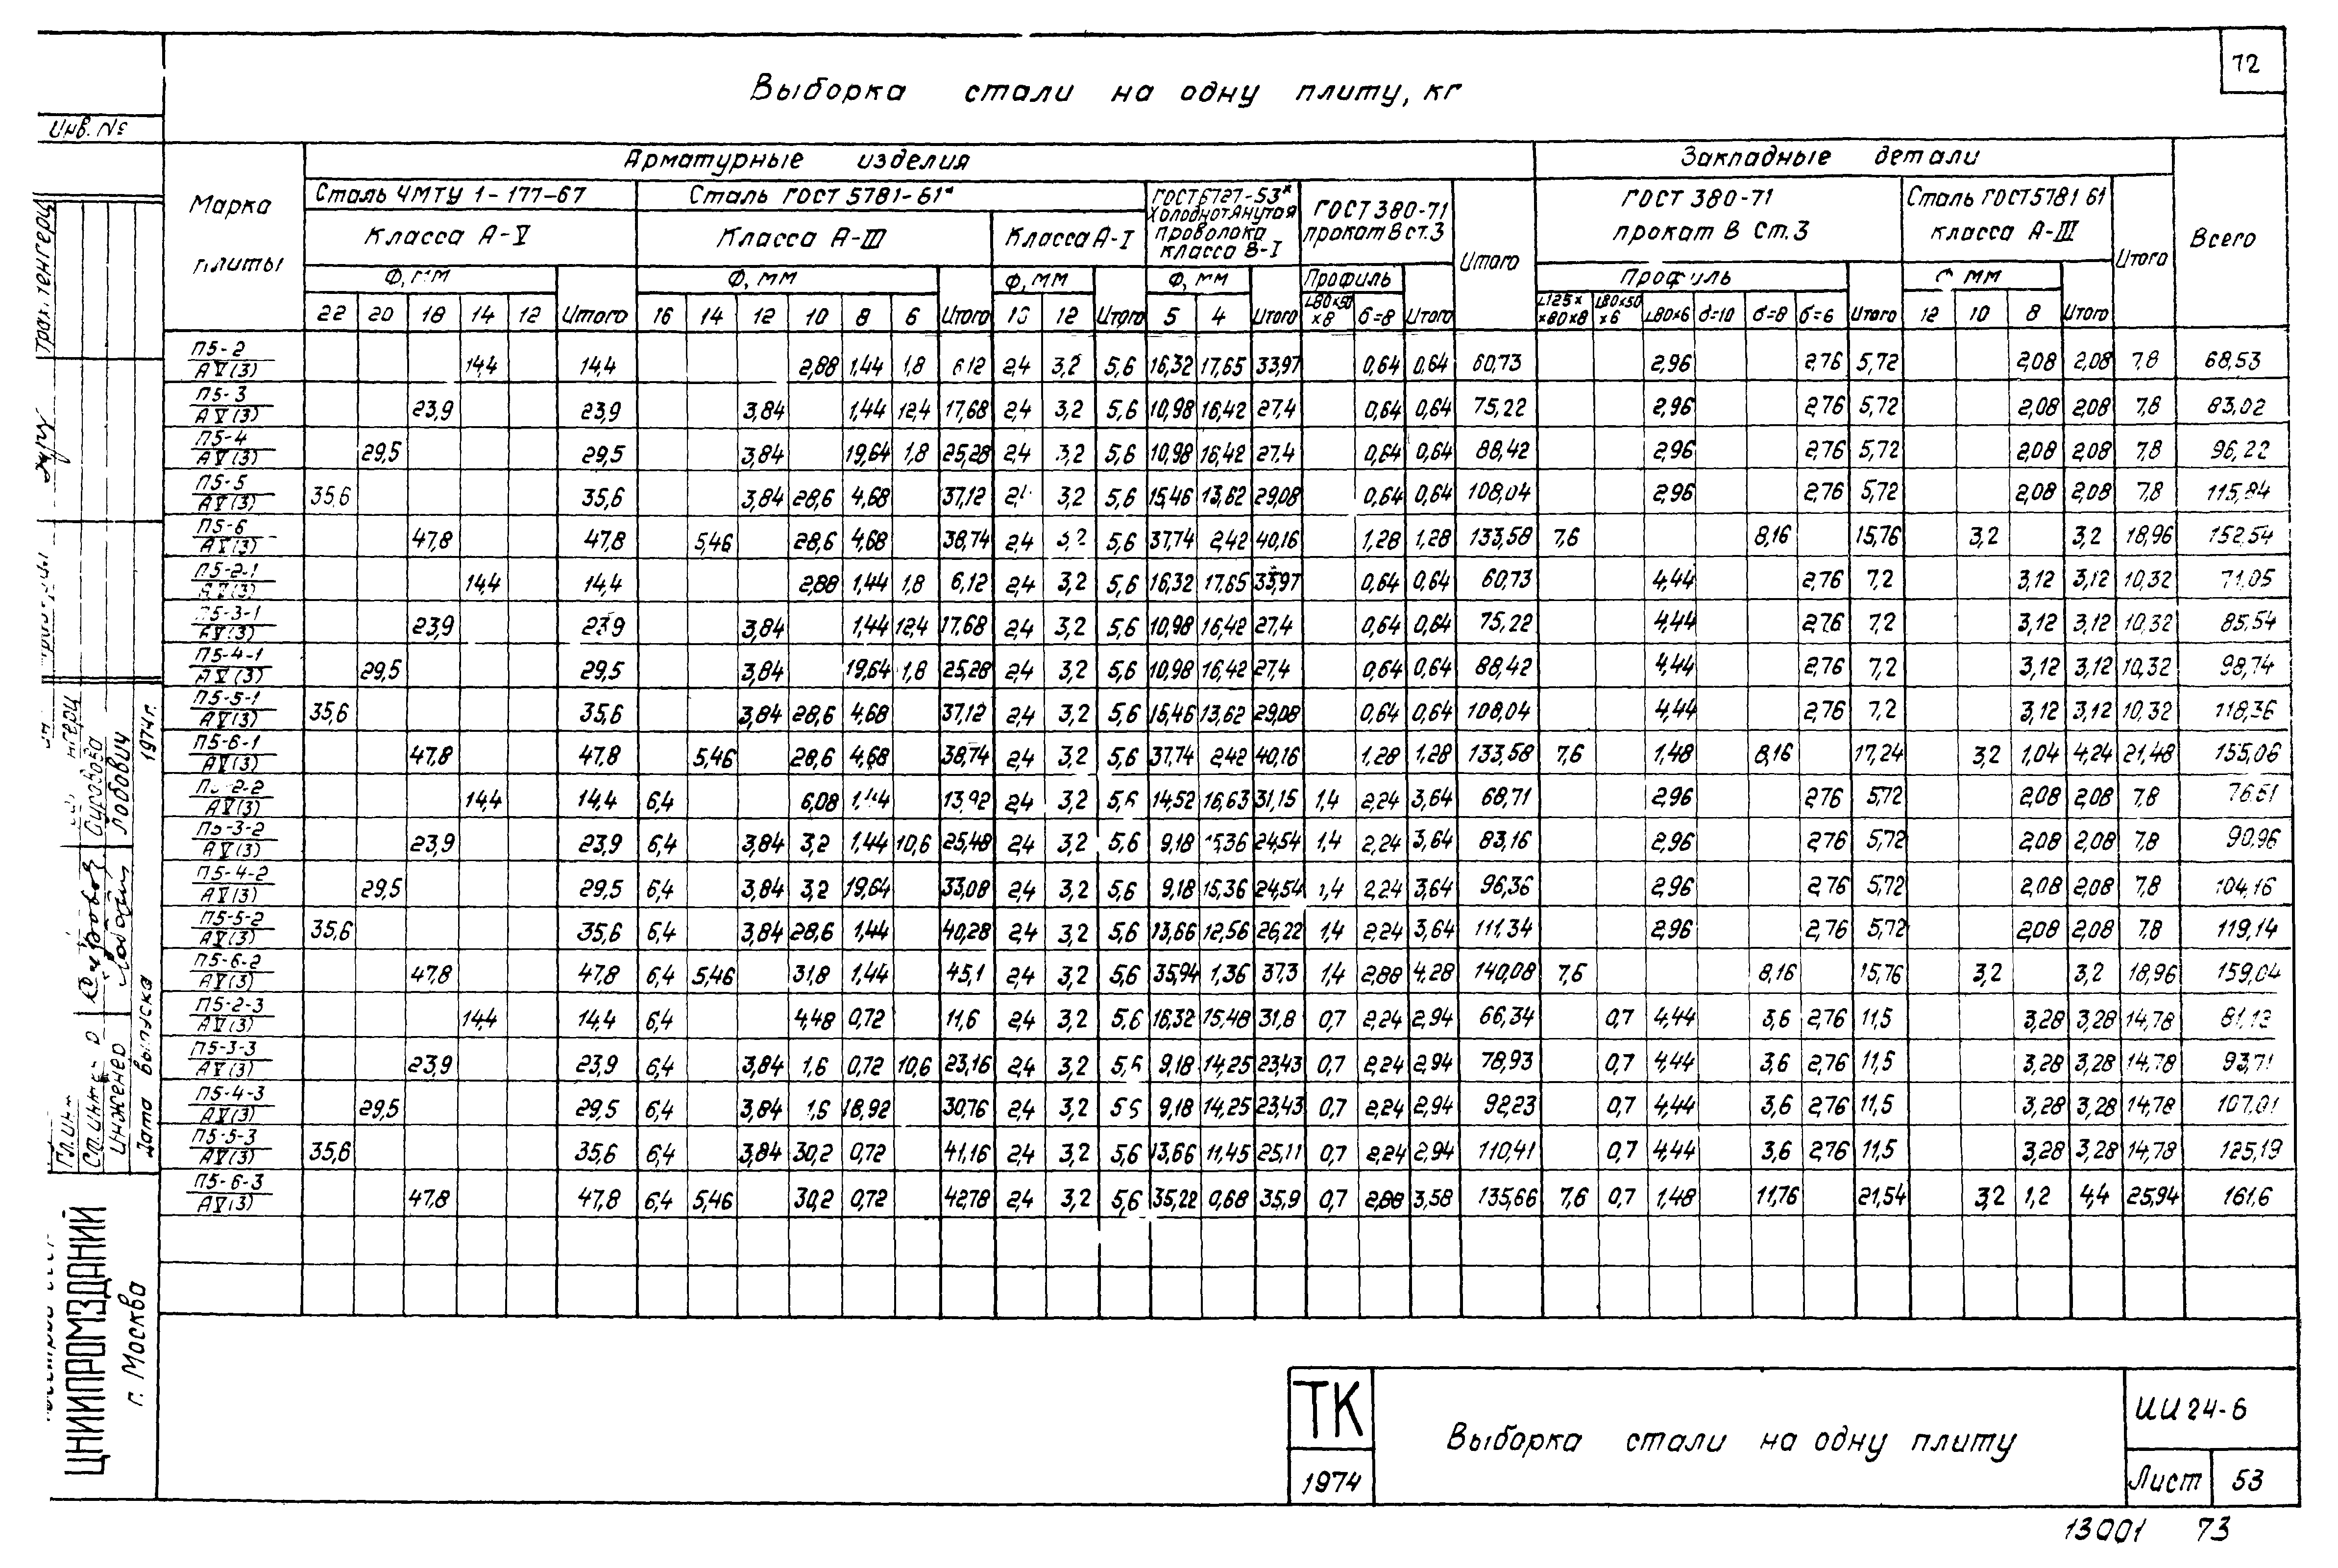 72
Выборка стали на одну плиту, кг
Инв. №
Марка плиты
Арматурные изделия
Закладные детали
Всего
Сталь ЧМТУ 1-177-67
Сталь ГОСТ 5781-61*
ГОСТ 6727-53* холоднотянутая проволока класса В-I
ГОСТ 380-71 прокат В ст.3
Итого
ГОСТ 380-71 прокат В Ст.3
Сталь ГОСТ 5781 61 класса А-III
Итого
Класса А-V
Класса А-III
Класса А-I
Ф, мм
Ф, мм
Ф, мм
Ф, мм
Профиль
Профиль
мм
22 20 18 14 12 Итого 16 14 12 10 8 6 Итого 12 Итого 5 4 Итого L80×50×8 б=8 Итого L125××80×8 L80×50×6 L80×6 б=10 б=8 б=6 Итого 12 10 8 Итого
П5-2 АV(3) 14,4 14,4 2,88 1,44 1,8 6,12 2,4 3,2 5,6 16,32 17,65 33,97 0,64 0,64 60,73 2,96 2,76 5,72 2,08 2,08 7,8 68,53
П5-3 АV(3) 23,9 23,9 3,84 1,44 12,4 17,68 2,4 3,2 5,6 10,98 16,42 27,4 0,64 0,64 75,22 2,96 2,76 5,72 2,08 2,08 7,8 83,02
П5-4 АV(3) 29,5 29,5 3,84 19,64 1,8 25,28 2,4 3,2 5,6 10,98 16,42 27,4 0,64 0,64 88,42 2,96 2,76 5,72 2,08 2,08 7,8 96,22
П5-5 АV(3) 35,6 35,6 3,84 28,6 4,68 37,12 3,2 5,6 15,46 13,62 29,08 0,64 0,64 108,04 2,96 2,76 5,72 2,08 2,08 7,8 115,84
П5-6 АV(3) 47,8 47,8 5,46 28,6 4,68 38,74 2,4 3,2 5,6 37,74 2,42 40,16 1,28 1,28 133,58 7,6 8,16 15,76 3,2 3,2 18,96 152,54
П5-2-1 АV(3) 14,4 14,4 2,88 1,44 1,8 6,12 2,4 3,2 5,6 16,32 17,65 33,97 0,64 0,64 60,73 4,44 2,76 7,2 3,12 3,12 10,32 71,05
П5-3-1 АV(3) 23,9 23,9 3,84 1,44 12,4 17,68 2,4 3,2 5,6 10,98 16,42 27,4 0,64 0,64 75,22 4,44 2,76 7,2 3,12 3,12 10,32 85,54
П5-4-1 АV(3) 29,5 29,5 3,84 19,64 1,8 25,28 2,4 3,2 5,6 10,98 16,42 27,4 0,64 0,64 88,42 4,44 2,76 7,2 3,12 3,12 10,32 98,74
П5-5-1 АV(3) 35,6 35,6 3,84 28,6 4,68 37,12 2,4 3,2 5,6 15,46 13,62 29,08 0,64 0,64 108,04 4,44 2,76 7,2 3,12 3,12 10,32 118,36
П5-6-1 АV(3) 47,8 47,8 5,46 28,6 4,68 38,74 2,4 3,2 5,6 37,74 2,42 40,16 1,28 1,28 133,58 7,6 1,48 8,16 17,24 3,2 1,04 4,24 21,48 155,06
П5-2-2 АV(3) 14,4 14,4 6,4 6,08 1,44 13,92 2,4 3,2 5,6 14,52 16,63 31,15 1,4 2,24 3,64 68,71 2,96 2,76 5,72 2,08 2,08 7,8 76,51
П5-3-2 АV(3) 23,9 23,9 6,4 3,84 3,2 1,44 10,6 25,48 2,4 3,2 5,6 9,18 15,36 24,54 1,4 2,24 3,64 83,16 2,96 2,76 5,72 2,08 2,08 7,8 90,96
П5-4-2 АV(3) 29,5 29,5 6,4 3,84 3,2 19,64 33,08 2,4 3,2 5,6 9,18 15,36 24,54 1,4 2,24 3,64 96,36 2,96 2,76 5,72 2,08 2,08 7,8 104,16
П5-5-2 АV(3) 35,6 35,6 6,4 3,84 28,6 1,44 40,28 2,4 3,2 5,6 13,66 12,56 26,22 1,4 2,24 3,64 111,34 2,96 2,76 5,72 2,08 2,08 7,8 119,14
П5-6-2 АV(3) 47,8 47,8 6,4 5,46 31,8 1,44 45,1 2,4 3,2 5,6 35,94 1,36 37,3 1,4 2,88 4,28 140,08 7,6 8,16 15,76 3,2 3,2 18,96 159,04
П5-2-3 АV(3) 14,4 14,4 6,4 4,48 0,72 11,6 2,4 3,2 5,6 16,32 15,48 31,8 0,7 2,24 2,94 66,34 0,7 4,44 3,6 2,76 11,5 3,28 3,28 14,78 81,12
П5-3-3 АV(3) 23,9 23,9 6,4 3,84 1,6 0,72 10,6 23,16 2,4 3,2 5,6 9,18 14,25 23,43 0,7 2,24 2,94 78,93 0,7 4,44 3,6 2,76 11,5 3,28 3,28 14,78 93,71
П5-4-3 АV(3) 29,5 29,5 6,4 3,84 1,6 18,92 30,76 2,4 3,2 5,6 9,18 14,25 23,43 0,7 2,24 2,94 92,23 0,7 4,44 3,6 2,76 11,5 3,28 3,28 14,78 107,01
П5-5-3 АV(3) 35,6 35,6 6,4 3,84 30,2 0,72 41,16 2,4 3,2 5,6 13,66 11,45 25,11 0,7 2,24 2,94 110,41 0,7 4,44 3,6 2,76 11,5 3,28 3,28 14,78 125,19
П5-6-3 АV(3) 47,8 47,8 6,4 5,46 30,2 0,72 42,78 2,4 3,2 5,6 35,22 0,68 35,9 0,7 2,88 3,58 135,66 7,6 0,7 1,48 11,76 21,54 3,2 1,2 4,4 25,94 161,6
Инженер Лобович
Дата выпуска 1974г.
ЦНИИПРОМЗДАНИЙ
г. Москва
ТК
1974
Выборка стали на одну плиту
ИИ 24-6
Лист 53
13001 73